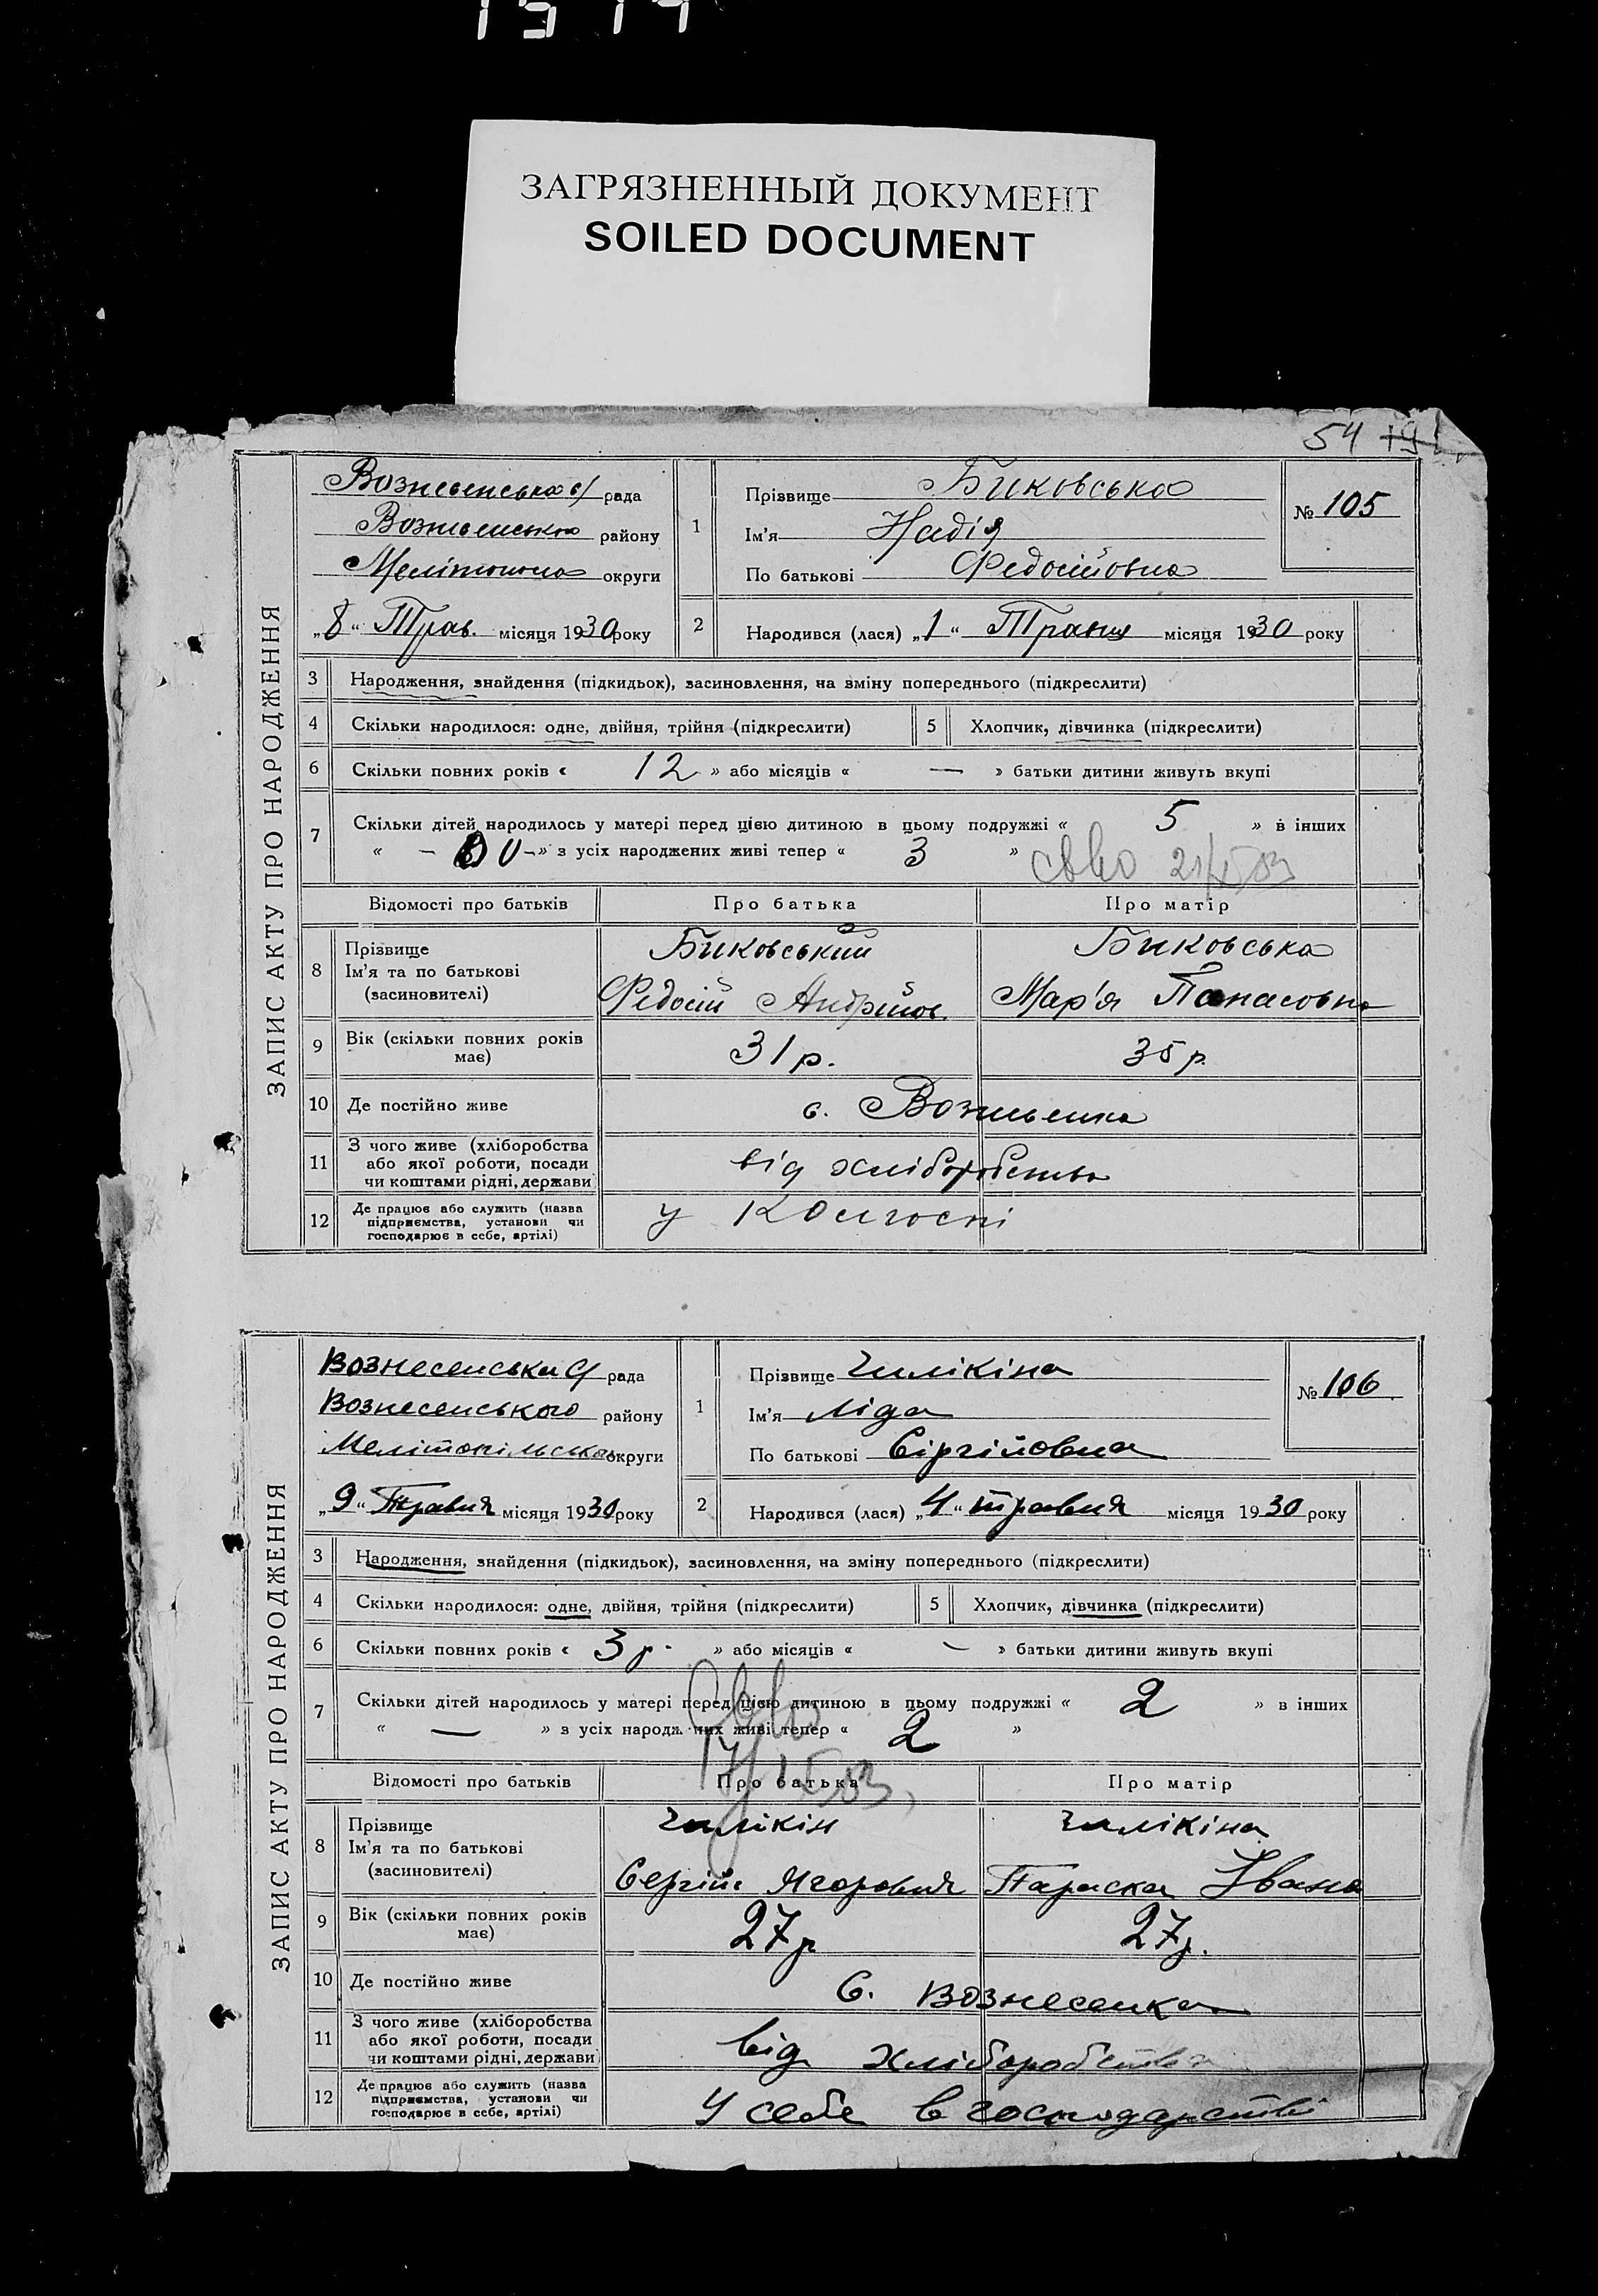 ЗАГРЯЗНЕННЫЙ ДОКУМЕНТ
SOILED DOCUMENT
54
ЗАПИС АКТУ ПРО НАРОДЖЕННЯ
Вознесенська с/ рада
району
округи
„8“ Трав. місяця 1930 року
1 Прізвище Биковська
Ім'я Надія
По батькові Федосійовна
№ 105
2 Народився (лася) „1“ Травня місяця 1930 року
3 Народження, знайдення (підкидьок), засиновлення, на зміну попереднього (підкреслити)
4 Скільки народилося: одне, двійня, трійня (підкреслити) 5 Хлопчик, дівчинка (підкреслити)
6 Скільки повних років « 12 » або місяців « — » батьки дитини живуть вкупі
7 Скільки дітей народилось у матері перед цією дитиною в цьому подружжі « 5 » в інших
« — » з усіх народжених живі тепер « 3 »
Відомості про батьків Про батька Про матір
8 Прізвище Биковський Биковська
Ім'я та по батькові
(засновителі) Федосій Андрійов. Мар'я Панасовна
9 Вік (скільки повних років має) 31 р. 35 р.
10 Де постійно живе с. Вознесенка
11 З чого живе (хліборобства
або якої роботи, посади
чи коштами рідні, держави) від хліборобства
12 Де працює або служить (назва
підприємства, установи чи
господарює в себе, артілі) у колгоспі
ЗАПИС АКТУ ПРО НАРОДЖЕННЯ
Вознесенська с/ рада
Вознесенського району
Мелітопільська округи
„9“ Травня місяця 1930 року
1 Прізвище Чилікіна
Ім'я Ліда
По батькові Сіргійовна
№ 106
2 Народився (лася) „4“ травня місяця 1930 року
3 Народження, знайдення (підкидьок), засиновлення, на зміну попереднього (підкреслити)
4 Скільки народилося: одне, двійня, трійня (підкреслити) 5 Хлопчик, дівчинка (підкреслити)
6 Скільки повних років « 3 р. » або місяців « — » батьки дитини живуть вкупі
7 Скільки дітей народилось у матері перед цією дитиною в цьому подружжі « 2 » в інших
« — » з усіх народжених живі тепер « 2 »
Відомості про батьків Про батька Про матір
8 Прізвище Чилікін Чилікіна
Ім'я та по батькові
(засиновителі) Сергій Ягорович Параска Івано
9 Вік (скільки повних років має) 27 р 27 р.
10 Де постійно живе С. Вознесенка
11 З чого живе (хліборобства
або якої роботи, посади
чи коштами рідні, держави) від хліборобства
12 Де працює або служить (назва
підприємства, установи чи
господарює в себе, артілі) У себе в господарстві